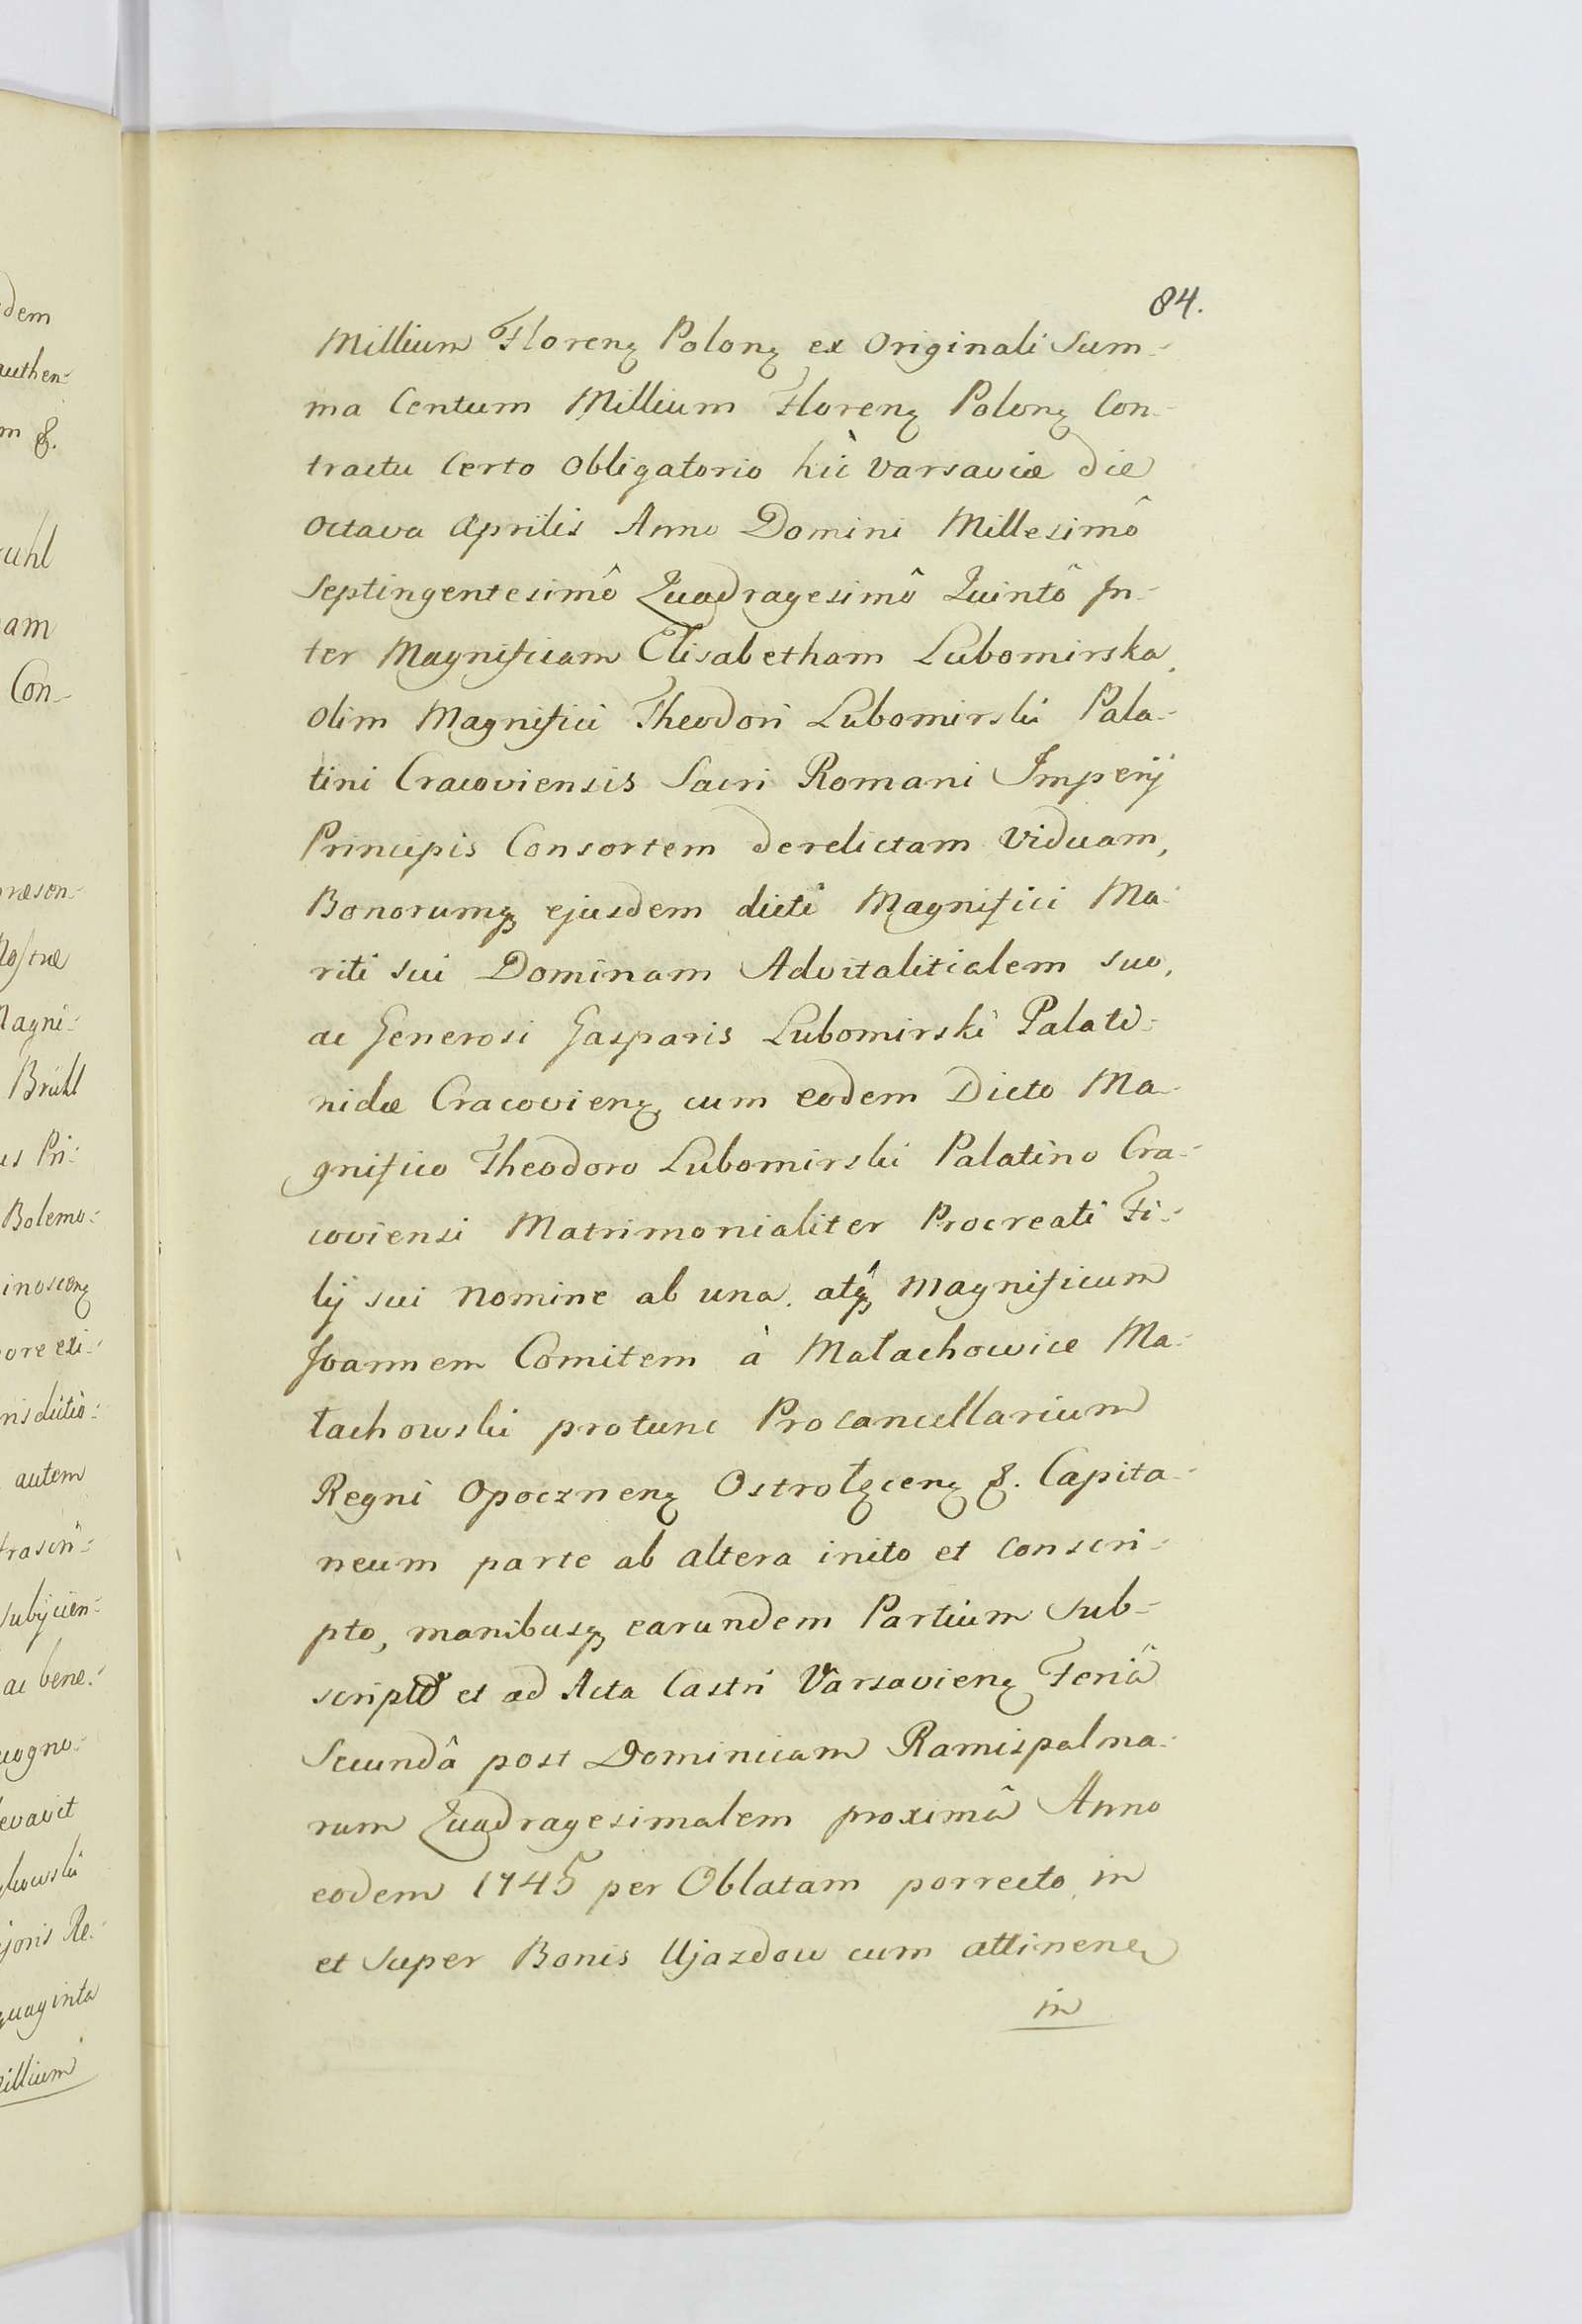 84.
Millium Florenꝫ Polonꝫ ex Originali Sum-
ma Centum Millium Florenꝫ Polonꝫ Con-
tractu Certo Obligatorio hìc Varsaviæ die
Octava Aprilis Anno Domini Millesimô
Septingentesimô Quadragesimô Quintô In-
ter Magnificam Elisabetham Lubomirska
Olim Magnifici Theodori Lubomirski Pala-
tini Cracoviensis Sacri Romani Imperij
Principis Consortem derelictam Viduam,
Bonorumqꝫ ejusdem dicti Magnifici Ma-
riti sui Dominam Advitalitialem suo,
ac Generosi Gasparis Lubomirski Palati-
nidæ Cracovienꝫ cum eodem Dicto Ma-
gnifico Theodoro Lubomirski Palatino Cra-
coviensi Matrimonialiter Procreati Fi-
lij sui nomine ab una. atqꝫ Magnificum
Joannem Comitem à Małachowice Ma-
łachowski protunc Procancellarium
Regni Opocznenꝫ Ostrołęcenꝫ &. Capita-
neum parte ab altera inito et conscri-
pto, manibusqꝫ earundem Partium Sub-
scripto et ad Acta Castri Varsavienꝫ Feriâ
Secundâ post Dominicam Ramispalma-
rum Quadragesimalem proximâ Anno
eodem 1745 per Oblatam porrecto, in
et Super Bonis Ujazdow cum attinenꝫ
in
dem
authen-
m &.
uhl
am
Con-
præsen-
Nostræ
Magni-
Brühl
us Pri-
Bolemo-
inoscenꝫ
ore exi-
risdictio-
autem
frascri-
subijcien-
ac bene-
cogno-
levavit
chowski
joris Re-
quaginta
Millium